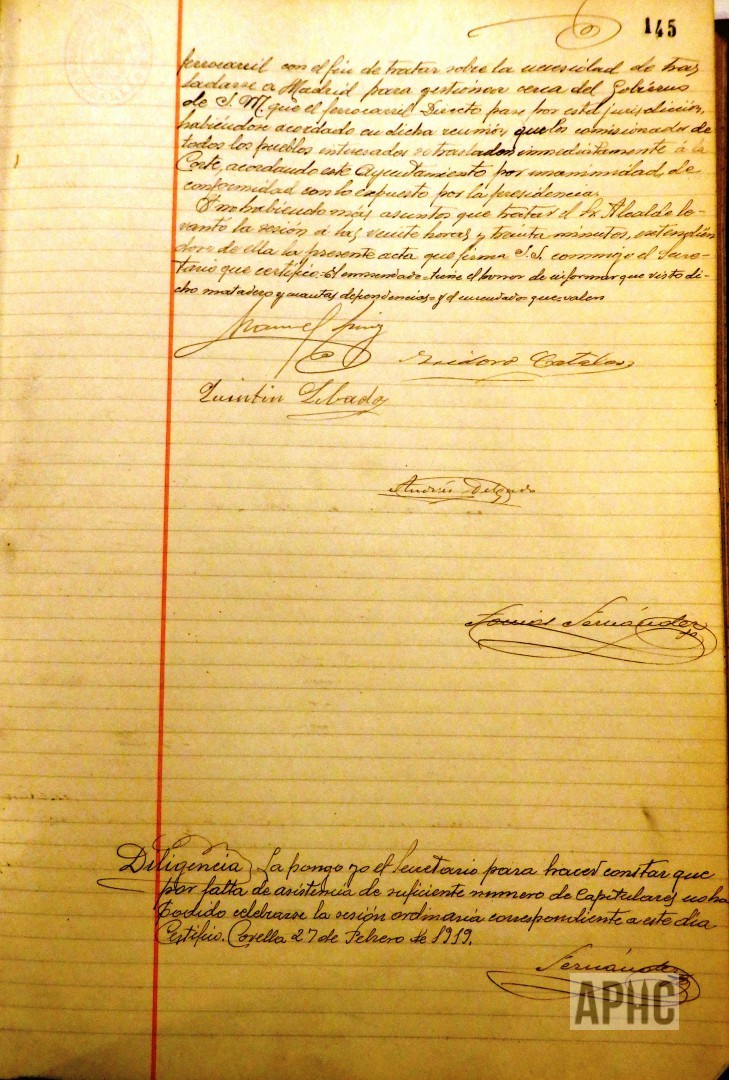 145
ferrocarril con el fin de tratar sobre la necesidad de tras
ladarse a Madrid para gestionar cerca del Gobierno
de S. M. que el ferrocarril Directo pase por esta jurisdicción,
habiéndose acordado en dicha reunión, que los comisionados de
todos los pueblos interesados se trasladen inmediatamente á la
Corte, acordando este Ayuntamiento por unanimidad, de
conformidad con lo expuesto por la presidencia.
Y no habiendo más asuntos que tratar el Sr. Alcalde le-
vantó la sesión a las veinte horas y treinta minutos, extendién
dose de ella la presente acta que firma S.S. conmigo el Secre-
tario que certifico=El enmendado=tiene el honor de informar que visto di-
cho matadero y cuantas dependencias=y el enmendado que=valen
Manuel
Isidoro Catalan
Quintin
Andrés Delgado
Fernández
Diligencia, La pongo yo el Secretario para hacer constar que
por falta de asistencia de suficiente numero de Capitulares, no ha
podido celebrarse la sesión ordinaria correspondiente a este día
Certifico. Corella 27 de Febrero de 1919.
Fernández
APHC